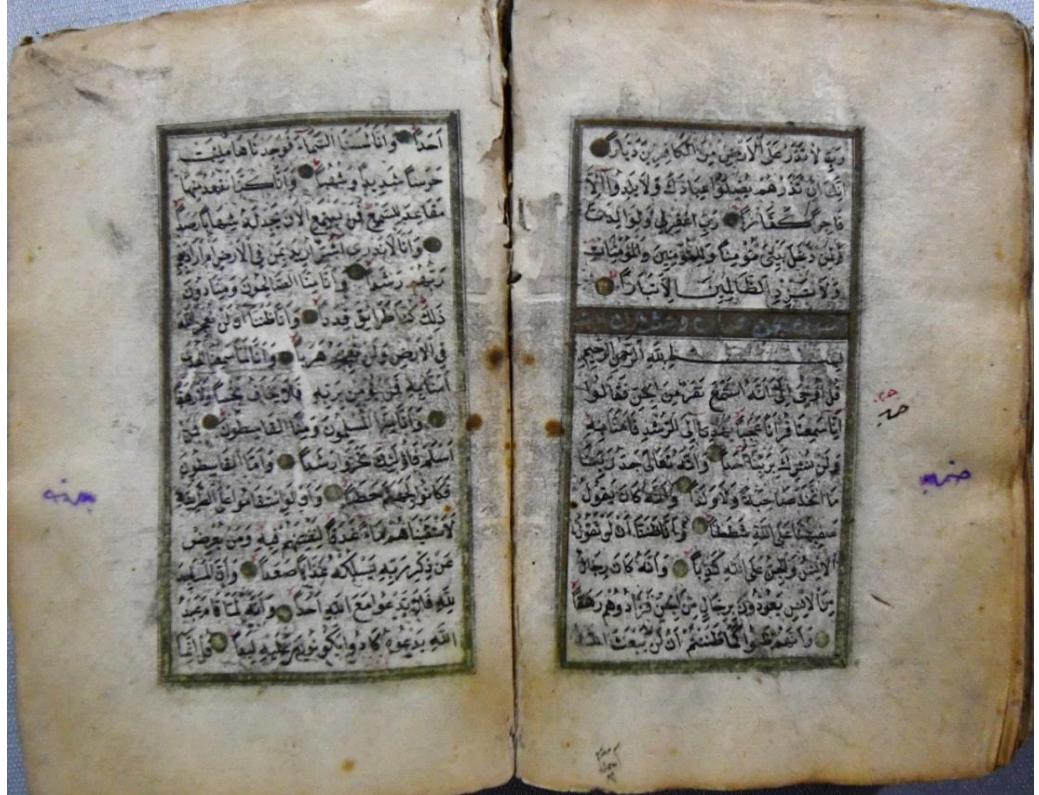 رَبِّ لَا تَذَرْ عَلَى الْاَرْضِ مِنَ الْكَافِرِينَ دَيَّاراً
اِنَّكَ اِنْ تَذَرْهُمْ يُضِلُّوا عِبَادَكَ وَلَا يَلِدُوا اِلَّا
فَاجِراً كَفَّاراً رَبِّ اغْفِرْلِي وَلِوَالِدَيَّ
وَلِمَنْ دَخَلَ بَيْتِيَ مُؤْمِناً وَلِلْمُؤْمِنِينَ وَالْمُؤْمِنَاتِ
وَلَا تَزِدِ الظَّالِمِينَ اِلَّا تَبَاراً
وعشرون
بِسْمِ اللهِ الرَّحْمنِ الرَّحِيمِ
قُلْ اُوحِيَ اِلَيَّ اَنَّهُ اسْتَمَعَ نَفَرٌ مِنَ الْجِنِّ فَقَالُوا
اِنَّا سَمِعْنَا قُرْاٰناً عَجَباً يَهْدِي اِلَى الرُّشْدِ فَاٰمَنَّا بِهِ
وَلَنْ نُشْرِكَ بِرَبِّنَا اَحَداً وَاَنَّهُ تَعَالٰى جَدُّ رَبِّنَا
مَا اتَّخَذَ صَاحِبَةً وَلَا وَلَداً وَاَنَّهُ كَانَ يَقُولُ
سَفِيهُنَا عَلَى اللهِ شَطَطاً وَاَنَّا ظَنَنَّا اَنْ لَنْ تَقُولَ
الْاِنْسُ وَالْجِنُّ عَلَى اللهِ كَذِباً وَاَنَّهُ كَانَ رِجَالٌ
مِنَ الْاِنْسِ يَعُوذُونَ بِرِجَالٍ مِنَ الْجِنِّ فَزَادُوهُمْ رَهَقاً
وَاَنَّهُمْ ظَنُّوا كَمَا ظَنَنْتُمْ اَنْ لَنْ يَبْعَثَ اللهُ
اَحَداً وَاَنَّا لَمَسْنَا السَّمَاءَ فَوَجَدْنَاهَا مُلِئَتْ
حَرَساً شَدِيداً وَشُهُباً وَاَنَّا كُنَّا نَقْعُدُ مِنْهَا
مَقَاعِدَ لِلسَّمْعِ فَمَنْ يَسْتَمِعِ الْاٰنَ يَجِدْ لَهُ شِهَاباً رَصَداً
وَاَنَّا لَا نَدْرِي اَشَرٌّ اُرِيدَ بِمَنْ فِي الْاَرْضِ اَمْ اَرَادَ بِهِمْ
رَبُّهُمْ رَشَداً وَاَنَّا مِنَّا الصَّالِحُونَ وَمِنَّا دُونَ
ذٰلِكَ كُنَّا طَرَائِقَ قِدَداً وَاَنَّا ظَنَنَّا اَنْ لَنْ نُعْجِزَ اللهَ
فِي الْاَرْضِ وَلَنْ نُعْجِزَهُ هَرَباً وَاَنَّا لَمَّا سَمِعْنَا الْهُدٰى
اٰمَنَّا بِهِ فَمَنْ يُؤْمِنْ بِرَبِّهِ فَلَا يَخَافُ بَخْساً وَلَا رَهَقاً
وَاَنَّا مِنَّا الْمُسْلِمُونَ وَمِنَّا الْقَاسِطُونَ فَمَنْ
اَسْلَمَ فَاُولٰئِكَ تَحَرَّوْا رَشَداً وَاَمَّا الْقَاسِطُونَ
فَكَانُوا لِجَهَنَّمَ حَطَباً وَاَنْ لَوِ اسْتَقَامُوا عَلَى الطَّرِيقَةِ
لَاَسْقَيْنَاهُمْ مَاءً غَدَقاً لِنَفْتِنَهُمْ فِيهِ وَمَنْ يُعْرِضْ
عَنْ ذِكْرِ رَبِّهِ يَسْلُكْهُ عَذَاباً صَعَداً وَاَنَّ الْمَسَاجِدَ
لِلّٰهِ فَلَا تَدْعُوا مَعَ اللهِ اَحَداً وَاَنَّهُ لَمَّا قَامَ عَبْدُ
اللهِ يَدْعُوهُ كَادُوا يَكُونُونَ عَلَيْهِ لِبَداً قُلْ اِنَّمَا